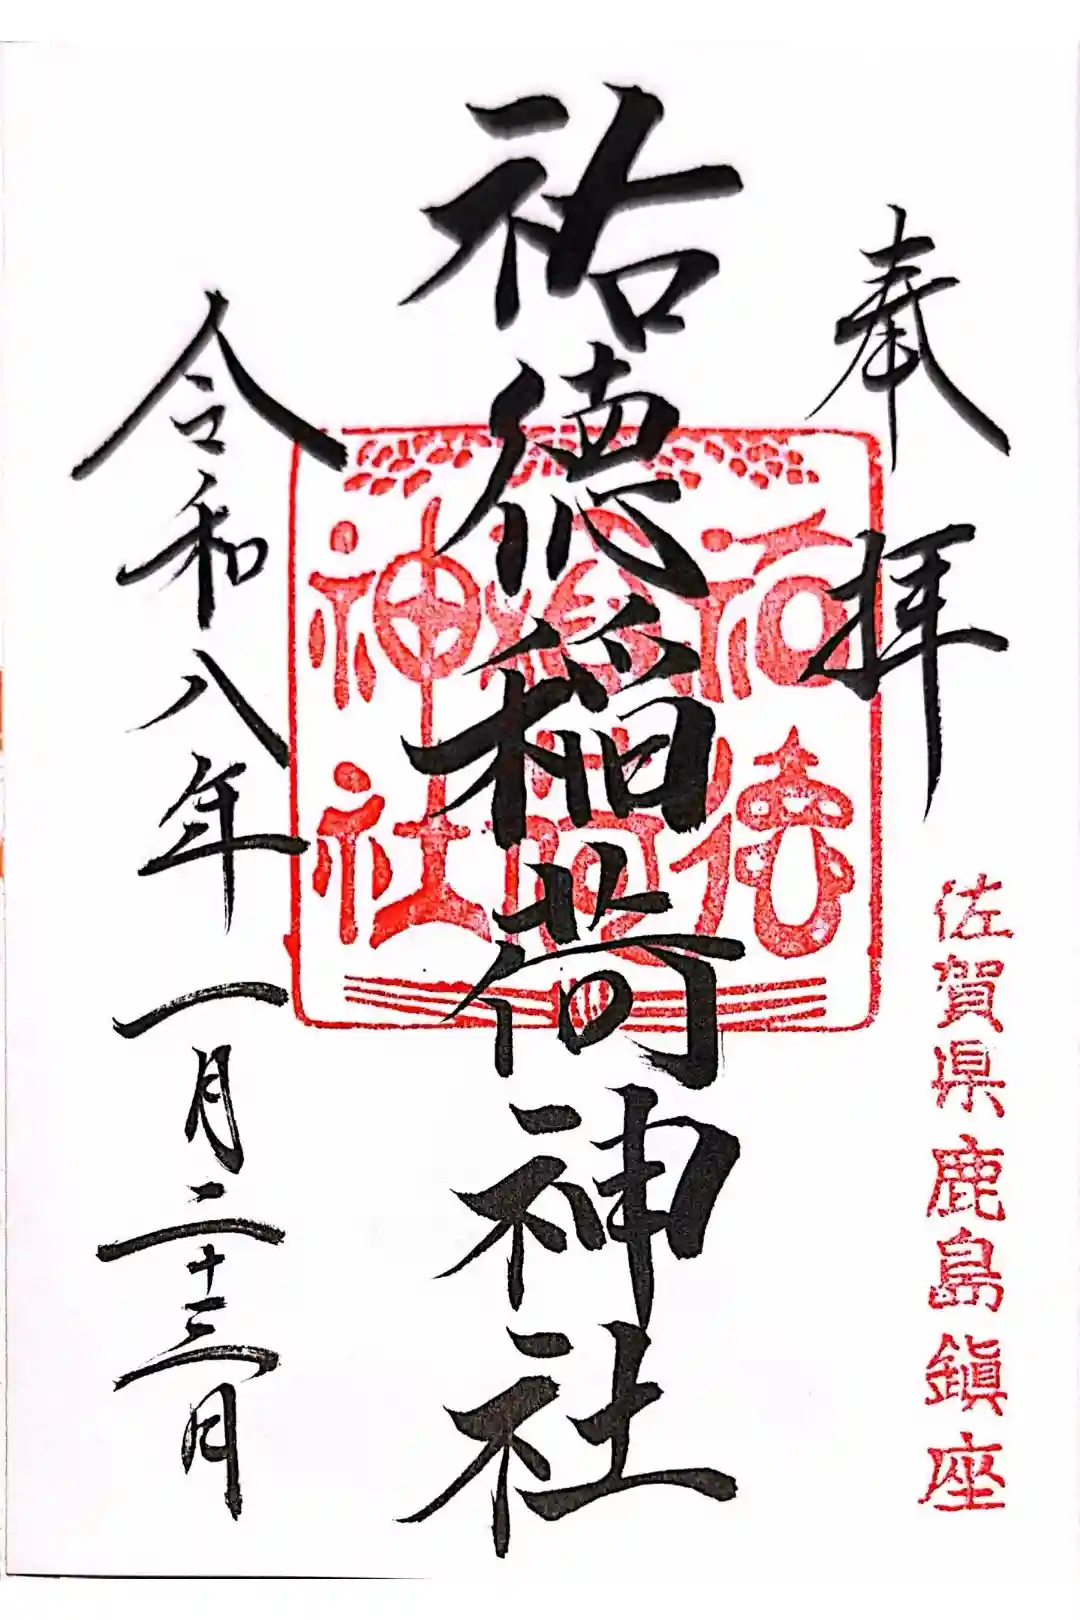 奉拝
佐賀県鹿島鎮座
祐徳稲荷神社
祐徳稲荷神社
令和八年一月二十三日